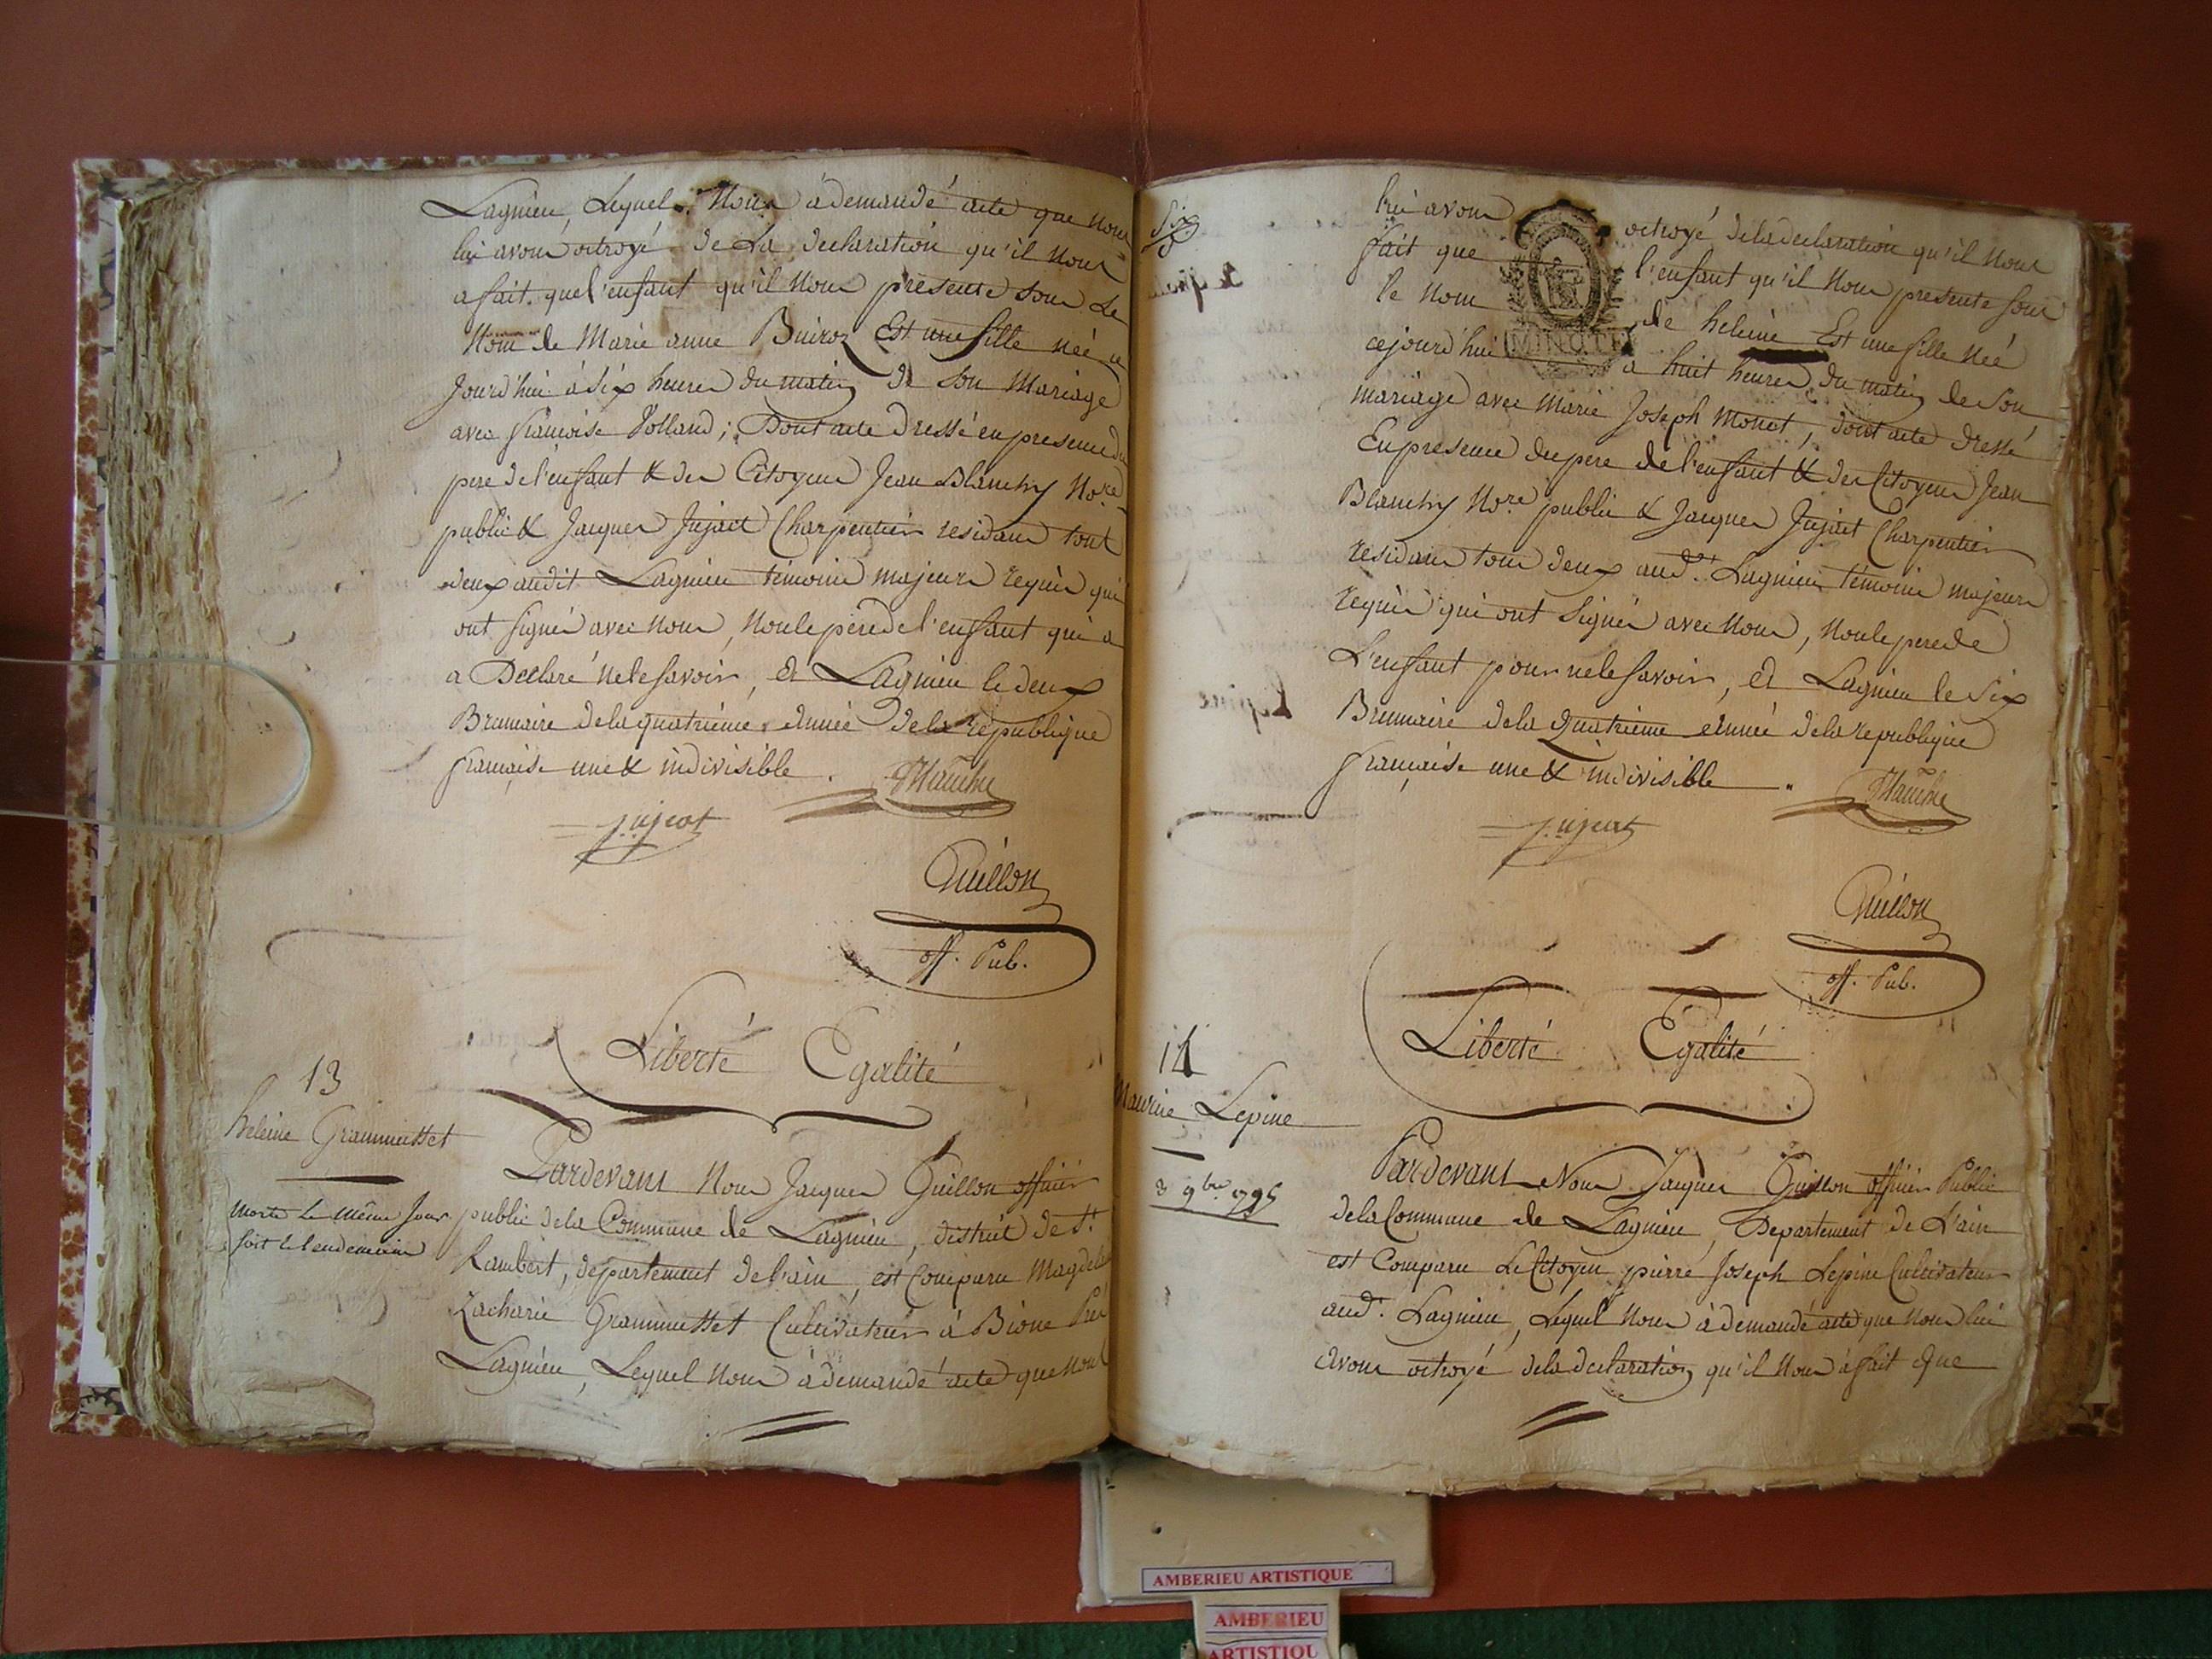 Lagnieu, Lequel Nous à demandé acte que Nous
lui avons octroyé de La declaration qu'il Nous
a fait que l'enfant qu'il Nous presente sous Le
Nom de Marie anne Buiroz Est une fille née ce
Jourd'hui à six heures du matin de Son Mariage
avec françoise Volland ; Dont acte Dressé en presence du
pere de l'enfant & des Citoyens Jean Blanchy No.re
public & Jacques Jujat Charpentier residans tout
deux audit Lagnieu témoins majeurs requis qui
ont signés avec Nous, Non le pere de l'enfant qui a
a Declaré ne le savoir, Et Lagnieu le deux
Brumaire de la quatrieme année de la republique
française une & indivisible .
Jujat
Guillon
off. Pub.
Liberté Egalité
13
heleine Grammusset
morte le même Jour
soit le lendemain
Pardevant Nous Jacques Guillon officier
public de la Commune de Lagnieu, district de St
Rambert, departement de l'ain, est Comparu
Zacharie Grammusset Cultivateur à
Lagnieu, Lequel Nous à demandé acte que Nous
six
lui avons octroyé de la declaration qu'il Nous
fait que l'enfant qu'il Nous presente sous
le Nom de heleine Est une fille Née
cejourd'hui à huit heures du matin de Son
MINUTE
mariage avec Marie Joseph Monet, dont acte dressé
En presence du pere de l'enfant & des Citoyens Jean
Blanchy No.re public & Jacques Jujat Charpentier
residans tous deux aud.t Lagnieu témoins majeurs
requis qui ont Signés avec Nous, Non le pere de
L'enfant pour ne le savoir, Et Lagnieu le Six
Brumaire de la Quatrieme année de la republique
française une & indivisible .
Jujat
Guillon
off. Pub.
Liberté Egalité
14
Maurice Lepine
3 9bre 1795
Pardevant Nous Jacques Guillon officier Public
de la Commune de Lagnieu, Departement de L'ain
est Comparu Le Citoyen pierre Joseph Lepine Cultivateur
aud.t Lagnieu, Lequel Nous à demandé acte que Nous lui
avons octroyé de la declaration qu'il Nous à fait que
AMBERIEU ARTISTIQUE
AMBERIEU